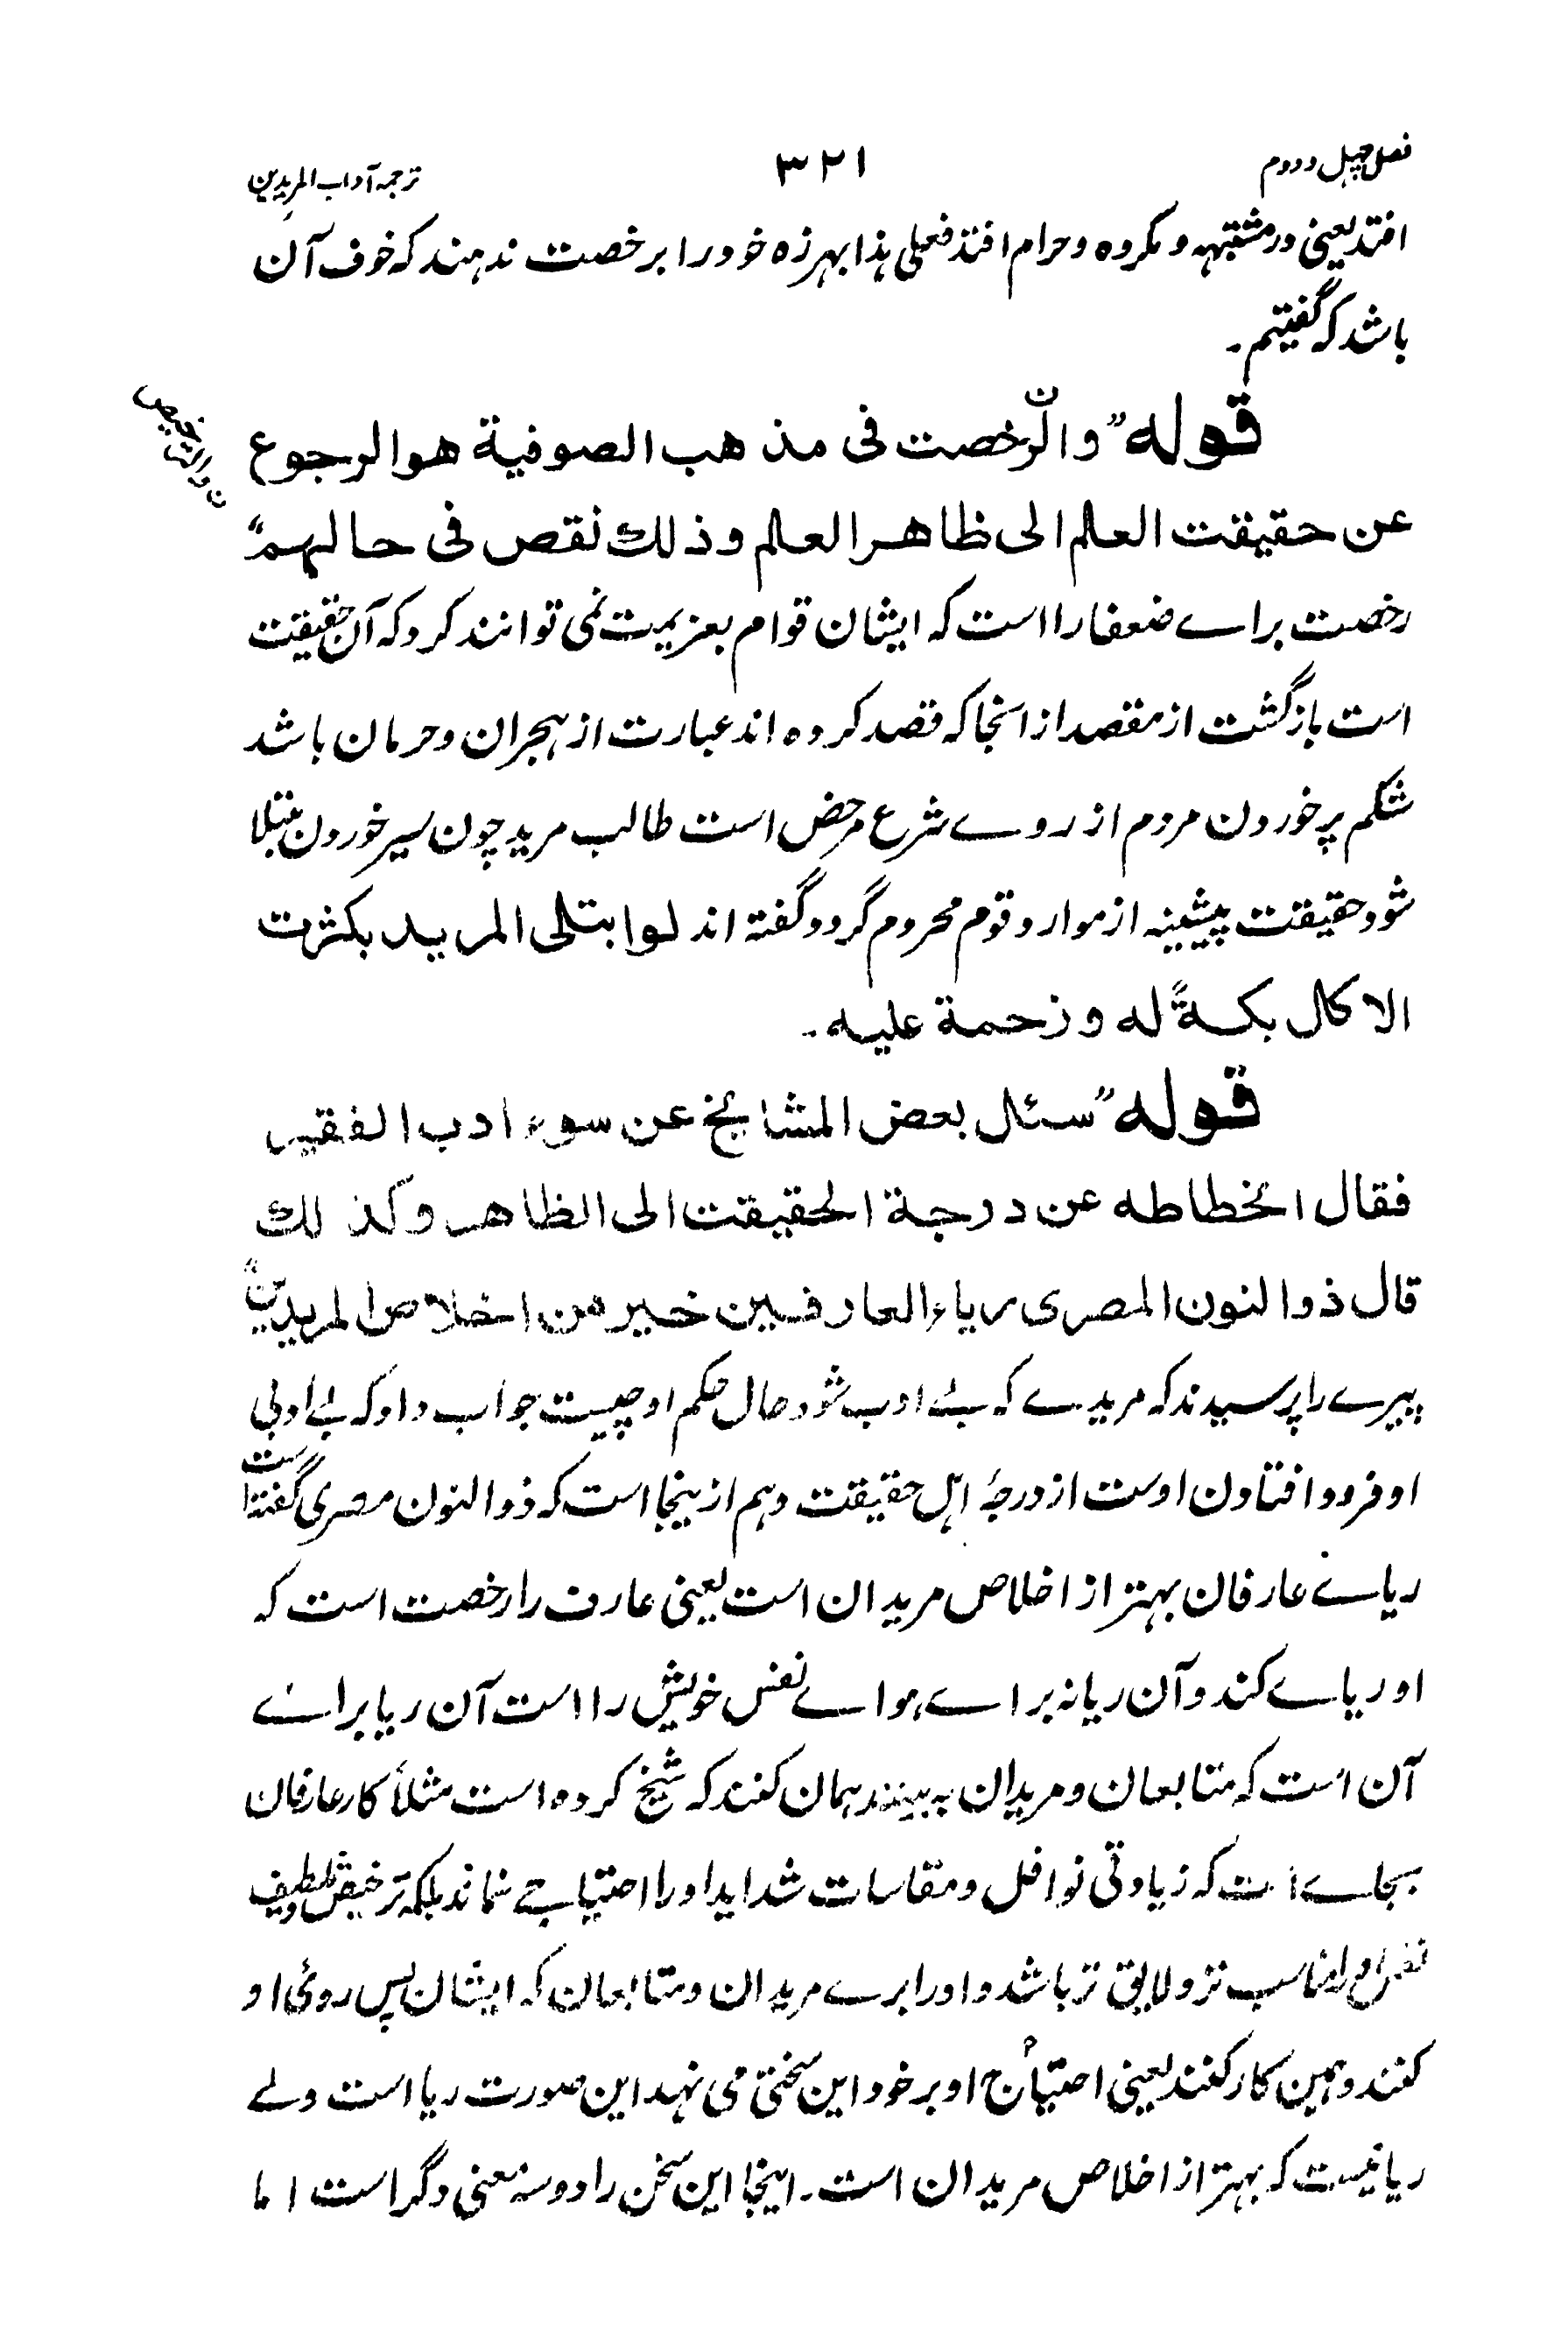 فصل چهل و دوم
۳۲۱
ترجمه آداب المریدین
افتد یعنی در مشتبهه و مکروه و حرام افتد فعلی هذا بهرزه خود را برخصت ندهند که خوف آن
باشد که گفتیم۔
قوله "والرّخصت فی مذهب الصوفیة هو الرجوع
ن والترخیص
عن حقیقت العلم الی ظاهر العلم وذلك نقص فی حالهم"
رخصت براے ضعفا را است که ایشان قوام بعزیمت نمی توانند کرد که آن حقیقت
است بازگشت از مقصد از آنجا که قصد کرده اند عبارت از هجران و حرمان باشد
شکم پر خوردن مردم از روے شرع مرخص است طالب مرید چون سیر خوردن مبتلا
شود حقیقت پیشینه از موارد قوم محروم گردد گفته اند لو ابتلی المرید بکثرت
الاکال بکسةً له وزحمة علیه۔
قوله "سئل بعض المشایخ عن سوء ادب الفقیر
فقال انحطاطه عن درجة الحقیقت الی الظاهر وکذلك
قال ذوالنون المصری ریاء العارفین خیر من اخلاص المریدین"
پیرے را پرسیدند که مریدے که بے ادب شود حال حکم او چیست جواب داد که بے ادبی
او فرود افتادن اوست از درجۂ اهل حقیقت و هم ازینجا است که ذوالنون مصری گفته است
ریاے عارفان بهتر از اخلاص مریدان است یعنی عارف را رخصت است که
او ریاے کند و آن ریا نه براے هواے نفس خویش را است آن ریا براے
آن است که متابعان و مریدان به بینند همان کنند که شیخ کرده است مثلاً کار عارفان
بجاے است که زیادتی نوافل و مقاسات شداید او را احتیاجے نماند بلکه ترخیص و تلطیف
نفس او را مناسب تر و لایق تر باشد و او را برے مریدان و متابعان که ایشان پس روئ او
کنند و همین کار کنند یعنی احتیاج او بر خود این سختی می نهد این صورت ریا است ولے
ریا نیست که بهتر از اخلاص مریدان است۔ اینجا این سخن را دو سه معنی دگر است اما